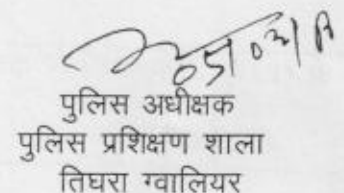 पुलिस अधीक्षक
पुलिस प्रशिक्षण शाला
तिघरा ग्वालियर